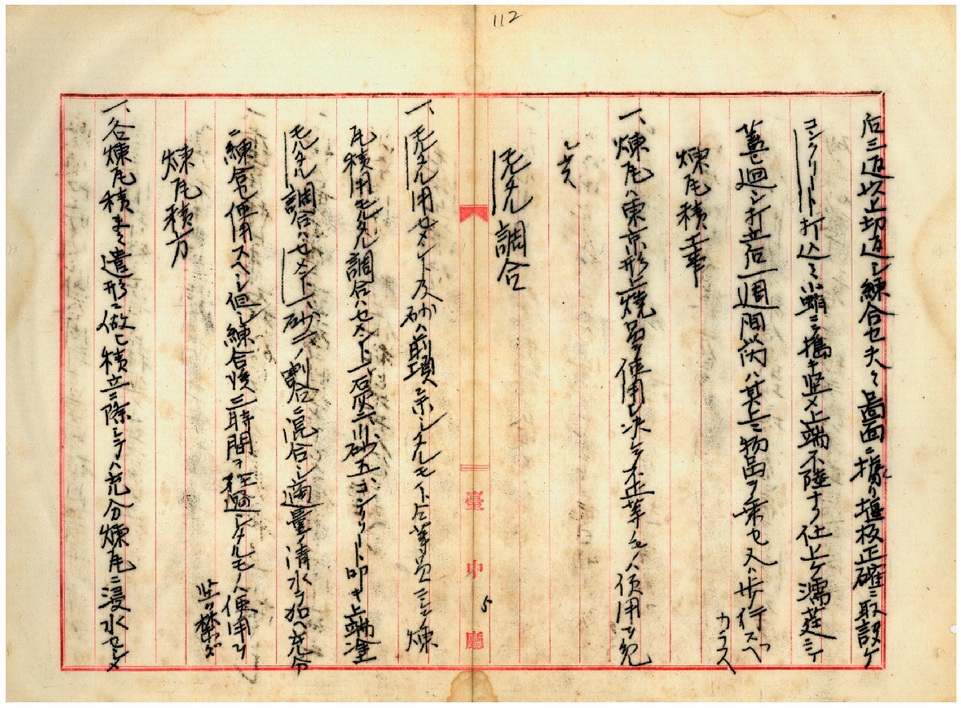 112
后三返以上切返シ練合セ夫々図面ニ據リ堰板正確ニ取設ケ
コンクリート打込ミ小蛸ニテ搗キ堅メ上端不陸ナク仕上ケ濡莚ニテ
蓋ヒ廻シ打立后一週間内ハ其上ニ物品ヲ乗セ又ハ歩行スヘ
カラス
煉瓦積工事
一、煉瓦ハ東京形上焼品ヲ使用シ決シテ不正等ノモノハ使用ヲ免
モルタル調合
一、モルタル用セメント及砂ハ前項ニ示シタルモノト同等品ニシテ煉
瓦積用モルタル調合ハセメント一、石灰二、川砂五コンクリート叩キ上端塗
モルタル調合ハセメント一、砂二ノ割合ニ混合シ適量ノ清水ヲ加ヘ充分
ニ練合使用スヘシ但シ練合後三時間ヲ経過シタルモノハ使用ヲ
禁ズ
煉瓦積方
一、各煉瓦積ハ遣形ニ倣ヒ積立ニ際シテハ充分煉瓦ニ浸水セシメ
臺中廳
5